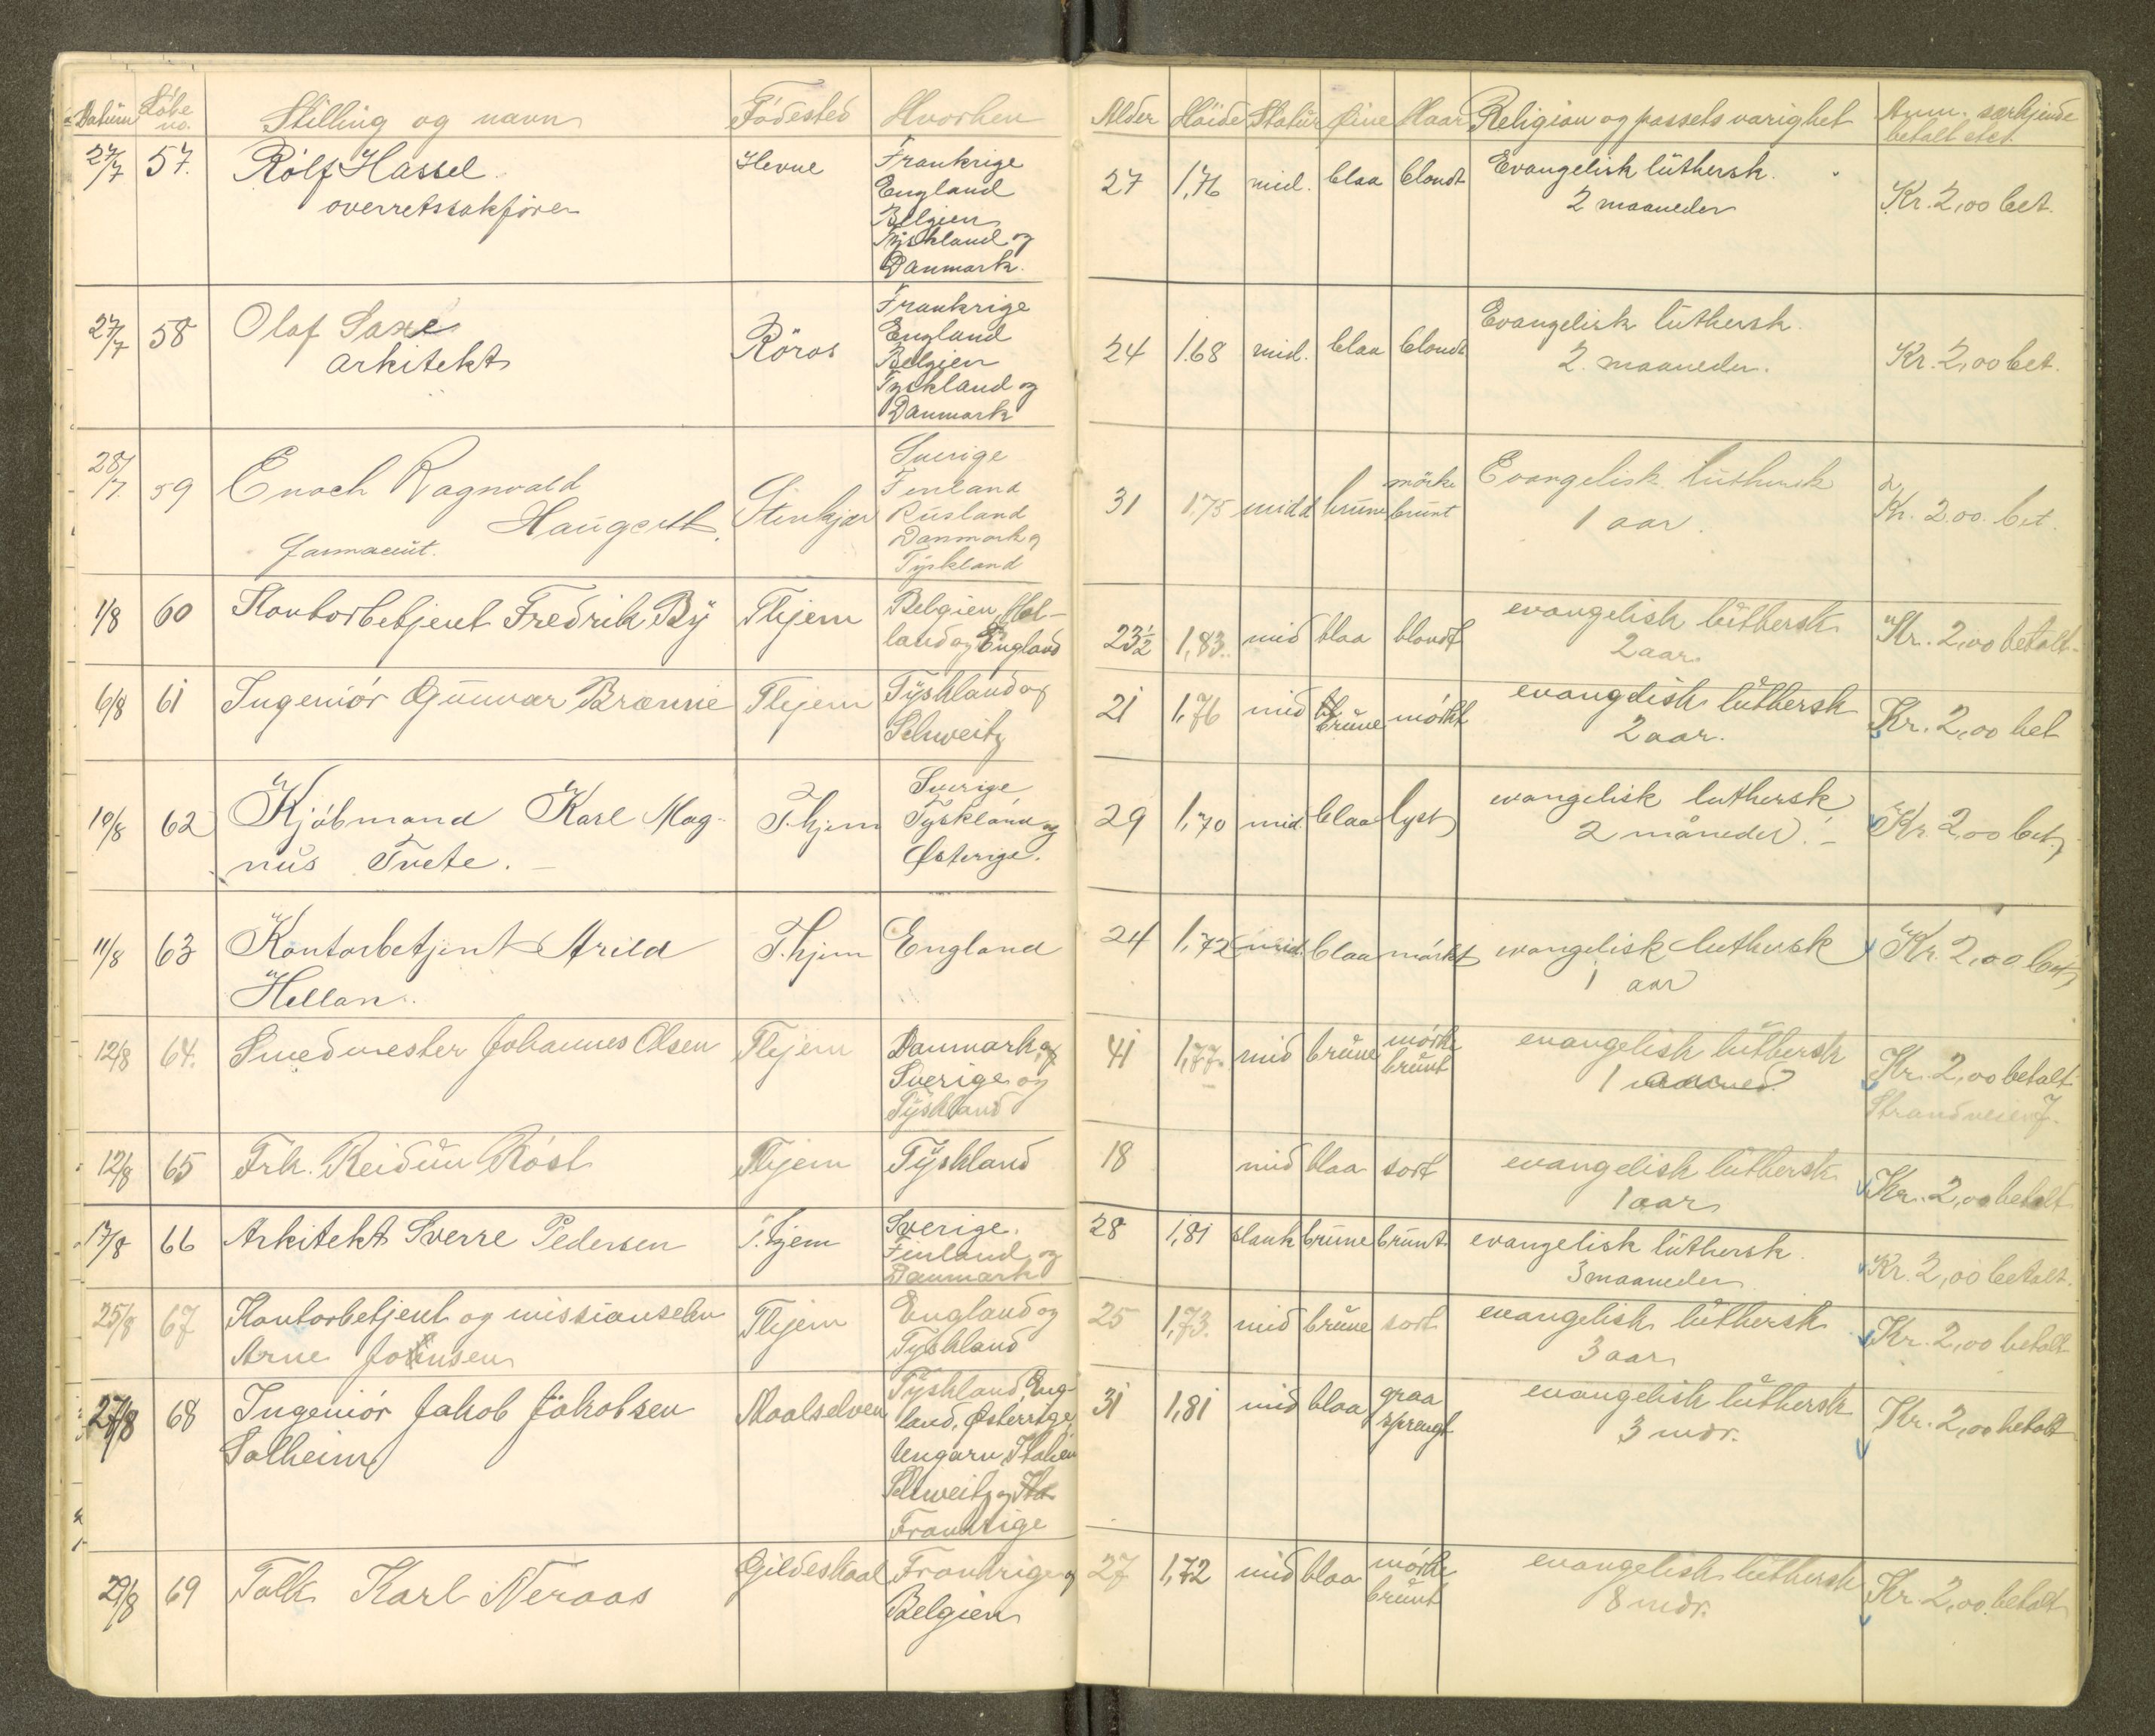 Datum Løbe no. Stilling og navn Födested Hvorhen Alder Höide Statur Øine Haar Religion og passets varighet Anm. særkjende
betalt etet.
27/7 57. Rolf Hassel. Hevne Frankrige 27 1,76 mid. blaa blondt Evangelisk lüthersk. Kr. 2,00 bet.
overretssakförer England 2 maaneder
Belgien
Tyskland og
Danmark.
27/7 58 Olaf Saxe Röros Frankrige 24 1.68 mid. blaa blondt Evangelisk lüthersk. Kr. 2,00 bet.
arkitekt England 2. maaneder.
Belgien
Tyskland og
Danmark
28/7. 59 Enoch Ragnvald Stenkjær Sverige 31 1,75 midd brüne mörke Evangelisk lüthersk Kr. 2.00. bet.
Haugerth. Finland brünt 1 aar.
farmaceüt. Rüsland
Danmark og
Tyskland
1/8 60 Kontorbetjent Fredrik By Thjem Belgien, Hol- 23½ 1,83. mid blaa blondt evangelisk lüthersk Kr. 2,00 betalt.
land og England 2 aar.
6/8 61 Ingeniör Günnar Brænne Thjem Tyskland og 21 1,76 mid brüne mörkt evangelisk lüthersk Kr. 2,00 bet
Schweitz 2 aar.
10/8 62 Kjöbmand Karl Mag- T.hjem Sverige 29 1,70 mid. blaa lyst evangelisk luthersk Kr. 2,00 bet.
nüs Tvete. Tyskland og 2 måneder.
Østerige.
11/8 63 Kontorbetjent Arild T.hjem England 24 1,72 mid. blaa mörkt evangelisk luthersk Kr. 2,00 bet.
Hellan. 1 aar
12/8 64. Smedmester Johannes Olsen Thjem Danmark, og 41 1,77. mid brüne mörke evangelisk lüthersk Kr. 2,00 betalt.
Sverige og brünt 1 maaned. Strandveien 7.
Tyskland
12/8 65 Frk. Reidün Röst Thjem Tyskland 18 mid blaa sort evangelisk lüthersk Kr. 2,00 betalt
1 aar
17/8 66 Arkitekt Sverre Pedersen T.hjem Sverige. 28 1,81 slank brüne brünt. evangelisk lüthersk. Kr. 2,00 betalt.
Finland og 3 maaneder
Danmark
25/8 67 Kontorbetjent og missionselev Thjem England og 25 1,73. mid brüne sort evangelisk lüthersk Kr. 2,00 betalt
Arne Johnsen Tyskland 3 aar
27/8 68 Ingeniör Jakob Jakobsen Maalselven Tyskland, Eng- 31 1,81 mid blaa graa evangelisk lüthersk Kr. 2,00 betalt
Solheim land, Østerrige, sprengt 3 mdr.
Ungarn, Italien
Schweitz og Ita
Frankrige
29/8 69 Tolk Karl Neraas Gildeskaal Frankrige og 27 1,72 mid blaa mörke evangelisk lüthersk Kr. 2,00 betalt
Belgien brünt 8 mdr.